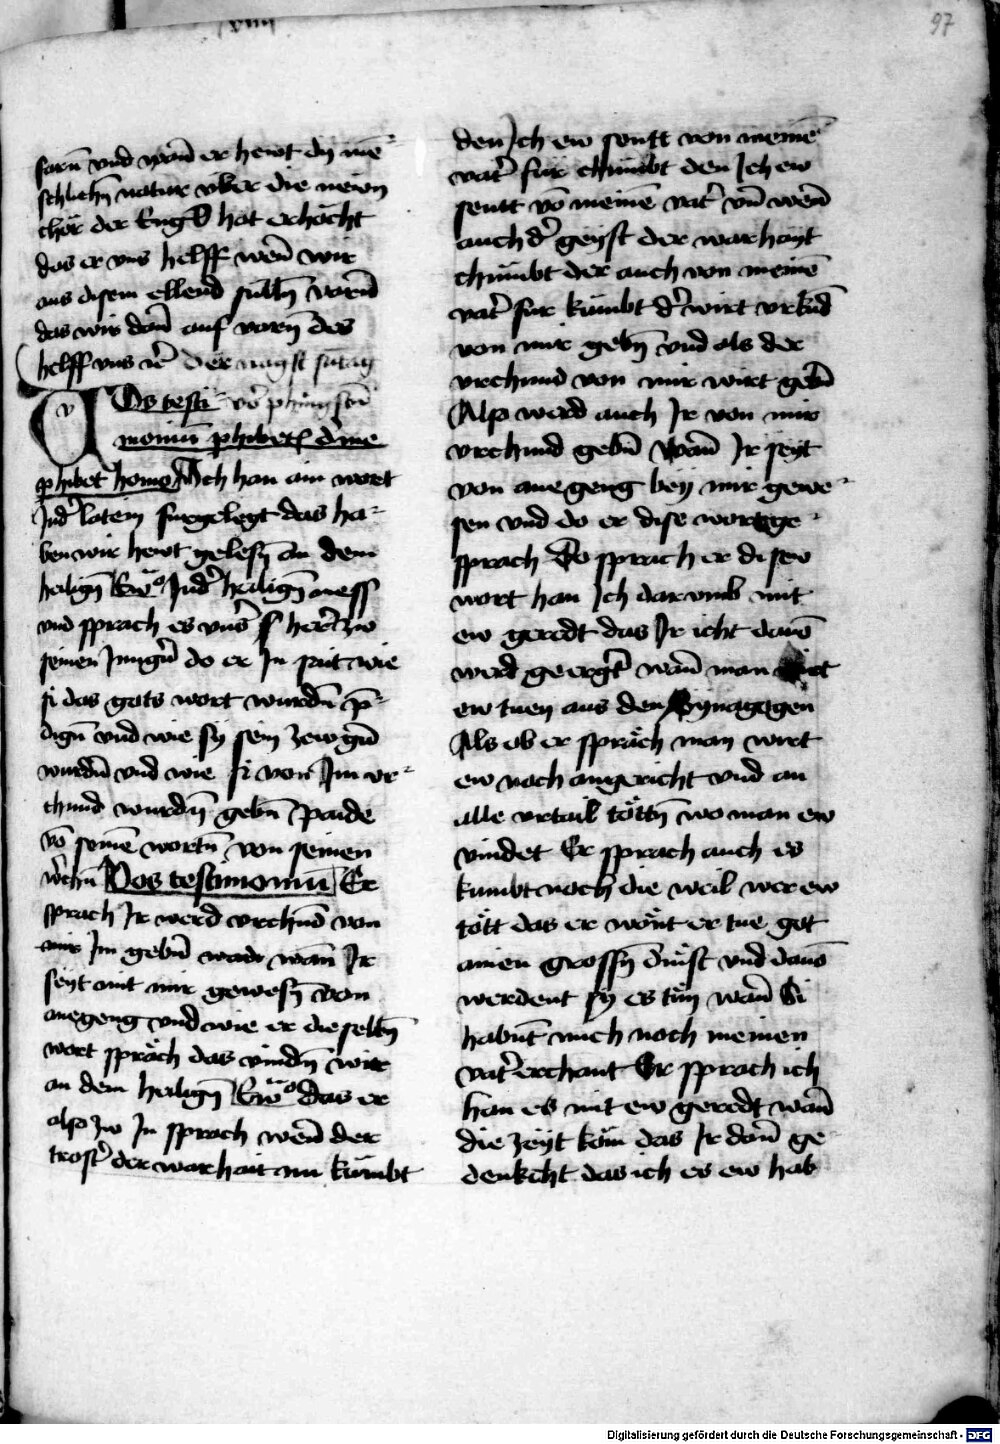 97
farn̄ vnd wan̄ er hewt dy mē-
schlichn̄ natur vber die newn
chör der Engl hat erhöcht
das er vns helff wen̄ wir
aus disem ellend sulln̄ varn̄
das wir dan̄ auf varn̄ des
helff vns etc̄ der nagst sūtag
Vos testi vor phingstn̄
moniū phibet̄
phibet homo Ich han ain wort
Jnd̄ latein furgelegt das ha-
ben wir hewt gelesn̄ an dem
heilign̄ Ew̄o Jnd̄ heilign̄ mess
vnd sprach es vnser herr zw
seinen Jungn̄ do er Jn sait wie
si das gots wort wurdn̄ p̄-
dign̄ vnd wie sy sein zewgn̄
wurdn̄ vnd wie si von Jm vr-
chund wurdn̄ gebn̄ paide
vō seinē wortn̄ von seinen
werchn̄ Vos testimoniū Er
sprach Jr werd vrchūd von
mir Jm gebn̄ wan̄ Jr
seyt mit mir gewesn̄ von
anegeng vnd wie er die selbn̄
wort spräch das vindn̄ wir
an dem heilign̄ Ew̄o das er
also zw Jn sprach wen̄ der
trost̄ der warhait nu kümbt
den Jch ew sentt von meinē
vat̄ für chümbt den Jch ew
sentt vō meinē vat̄ vn̄ wen̄
auch d̄ geyst der warhayt
chümbt der auch von meinē
vat̄ fur kümbt d̄ wirt vrkūd
von mir gebn̄ vnd als der
vrchund von mir wirt gebn̄
Also werd auch Jr von mir
vrchund gebn̄ Wan̄ Jr seyt
von anegeng bey mir gewe-
sen vnd do er dise wort ge-
sprach Do sprach er disew
wort han Jch darumb mit
ew geredt das Jr icht dauō
werd geergt̄ wan̄ man wirt
ew tuen aus den Synagogen
Als ob er spräch man wirt
ew nach angericht vnd an
alle vrtail töttn̄ wo man ew
vindet Er sprach auch es
kumbt noch die weil wer ew
tött das er wönt er tue got
ainen grossn̄ dinst vnd dauō
werdent sy es tun wan̄ Si
habnt̄ mich noch meinen
vat̄ erchant Er sprach ich
han es mit ew geredt wan̄
die zeyt köm das Jr dan̄ ge-
denkcht das ich es ew hab
Digitalisierung gefördert durch die Deutsche Forschungsgemeinschaft - DFG